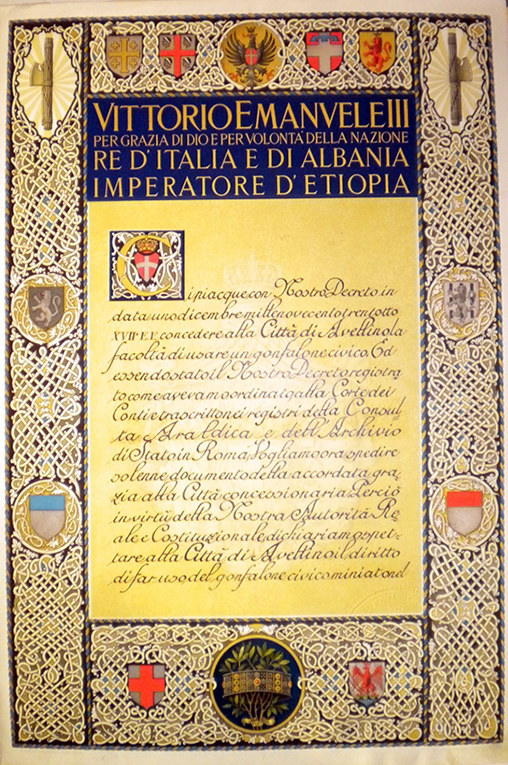 VITTORIO EMANVELE III
PER GRAZIA DI DIO E PER VOLONTA' DELLA NAZIONE
RE D'ITALIA E DI ALBANIA
IMPERATORE D'ETIOPIA
Ci piacque con Nostro Decreto in
data uno dicembre millenovecentotrentotto
XVII° E.F. concedere alla Città di Avellino la
facoltà di usare un gonfalone civico Ed
essendo stato il Nostro Decreto registra
to come avevamo ordinato alla Corte dei
Conti e trascritto nei registri della Consul
ta Araldica e dell'Archivio
di Stato in Roma, Vogliamo ora spedire
solenne documento della accordata gra
zia alla Città concessionaria Perciò
in virtù della Nostra Autorità Re
ale e Costituzionale dichiariamo spet
tare alla Città di Avellino il diritto
di far uso del gonfalone civico miniato nel